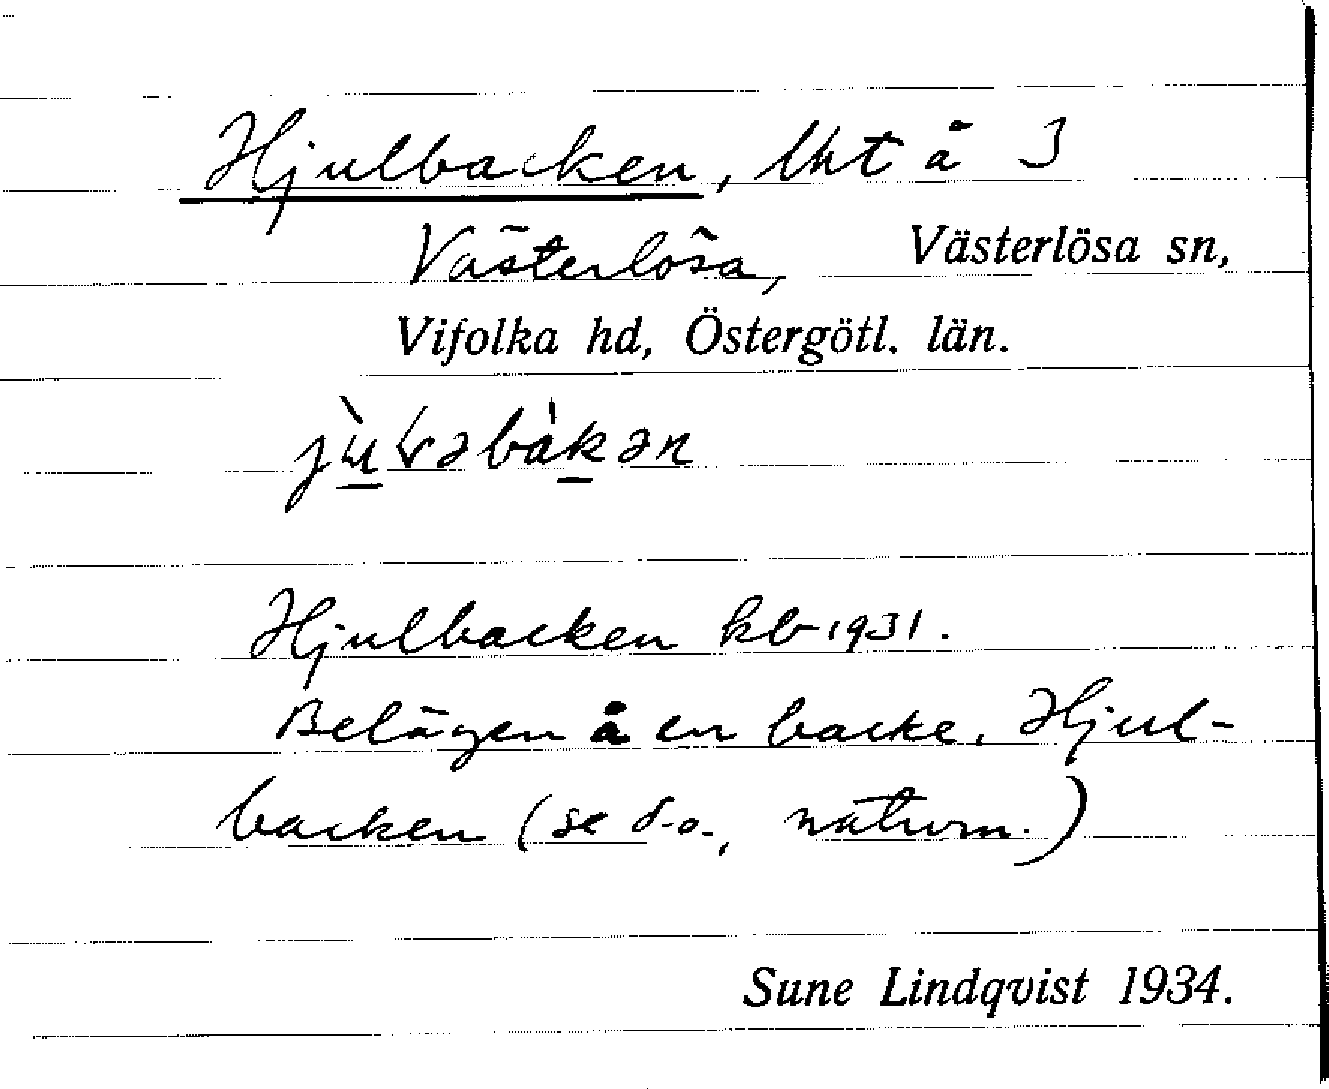 Hjulbacken, lht å 3
Västerlösa, Västerlösa sn,
Vifolka hd, Östergötl. län.
Hjulbacken kb 1931.
Belägen å en backe, Hjul-
backen (se d.o., naturn.)
Sune Lindqvist 1934.